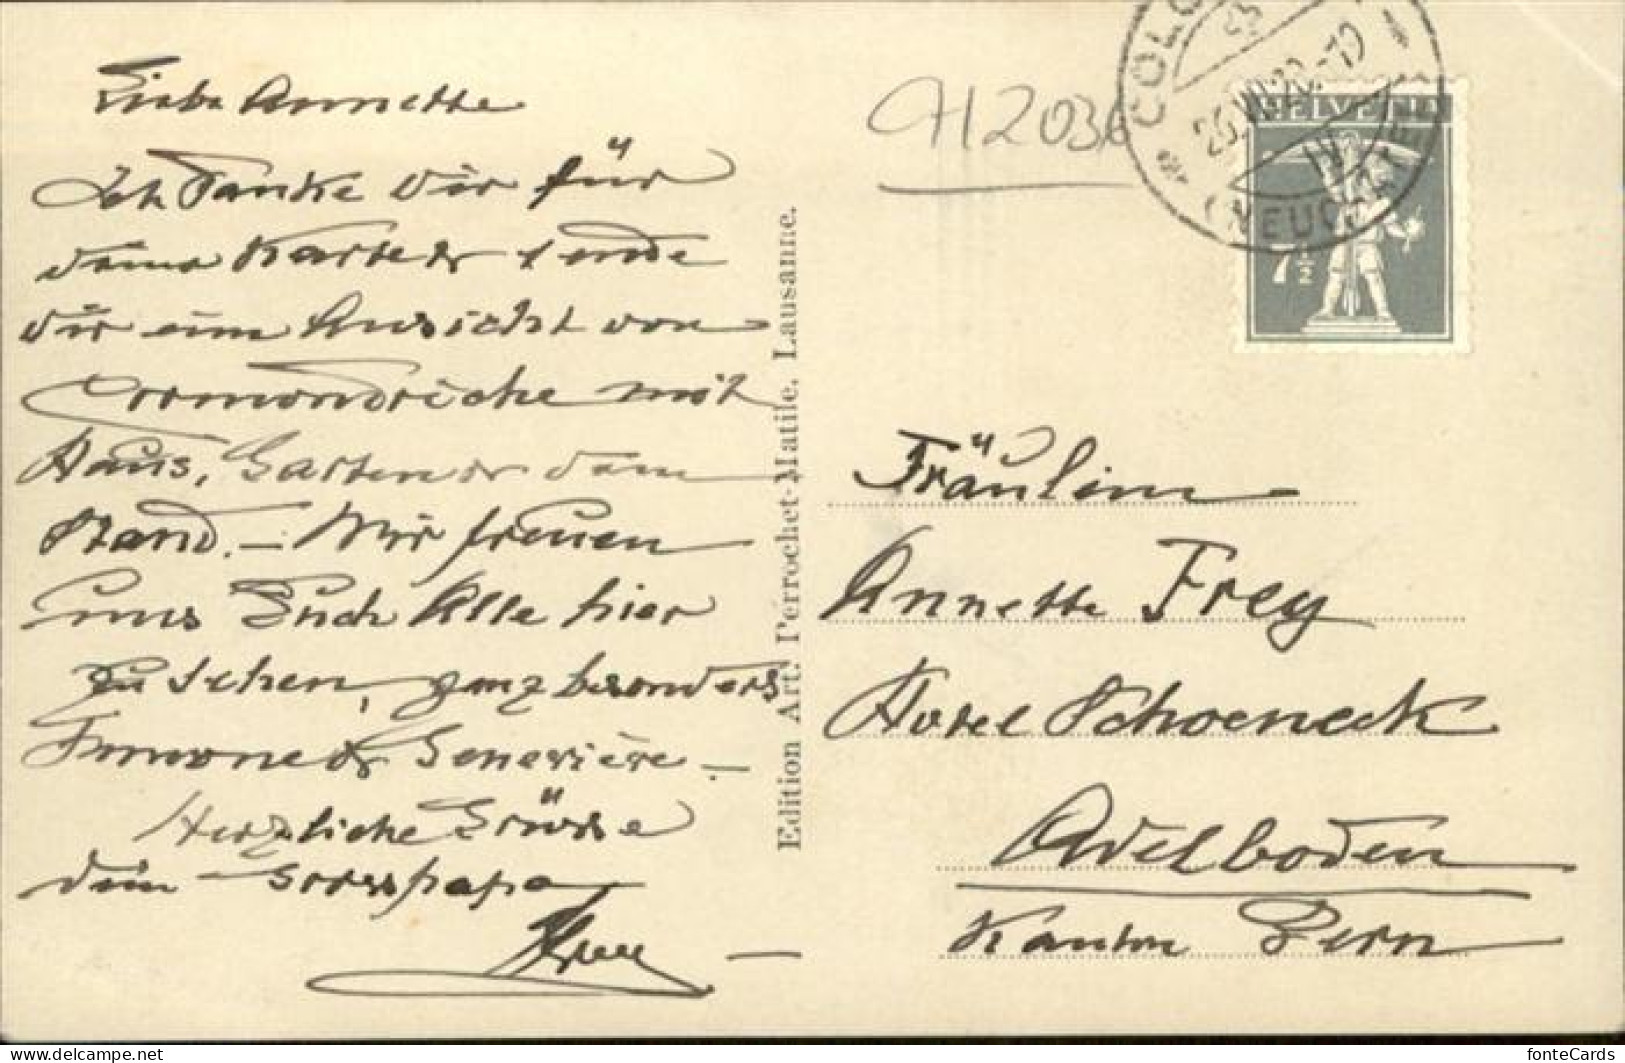 Liebe Annette
Ich Danke Dir für
deine Karte & sende
Dir eine Ansicht von
Cormondrèche mit
Haus, Garten & dem
Stand. – Wir freuen
uns Euch Alle hier
zu sehen, ganz besonders
Simone & Geneviève –
Herzliche Grüsse
dein Grosspapa
Edition Art. Perrochet-Matile. Lausanne.
H2036
(NEUCHATEL)
HELVETIA
7½
Fräulein
Annette Frey
Hotel Schoeneck
Adelboden
Kanton Bern
fonteCards